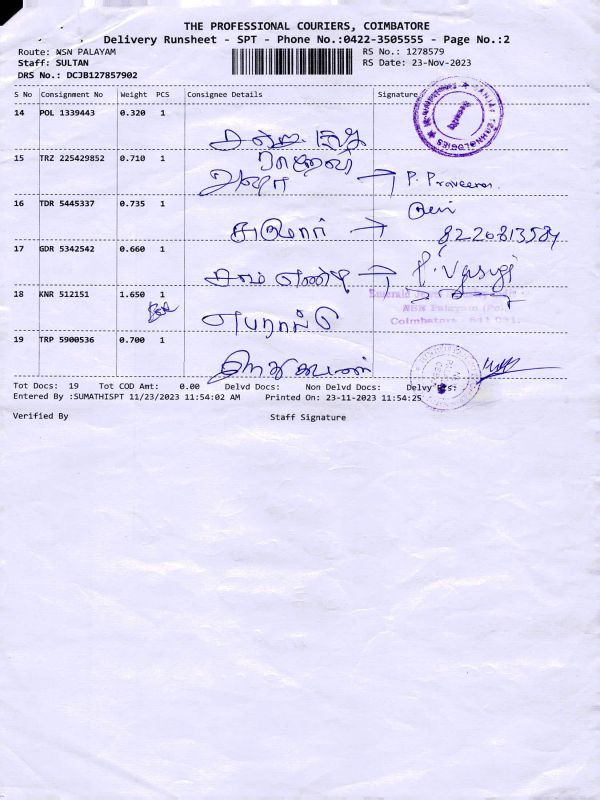 THE PROFESSIONAL COURIERS, COIMBATORE
Delivery Runsheet - SPT - Phone No.:0422-3505555 - Page No.:2
Route: NSN PALAYAM RS No.: 1278579
Staff: SULTAN RS Date: 23-Nov-2023
DRS No.: DCJB127857902
S No Consignment No Weight PCS Consignee Details Signature
14 POL 1339443 0.320 1
TECHNOLOGIES
15 TRZ 225429852 0.710 1
→ P. Praveena.
16 TDR 5445337 0.735 1
குமார் → 8220813584
17 GDR 5342542 0.660 1
→ P. Vasugi
18 KNR 512151 1.650 1
Emerald
NSN Palayam (Po)
Coimbatore - 641 031.
19 TRP 5900536 0.700 1
Tot Docs: 19 Tot COD Amt: 0.00 Delvd Docs: Non Delvd Docs: Delvy
Entered By :SUMATHISPT 11/23/2023 11:54:02 AM Printed On: 23-11-2023 11:54:25
Verified By Staff Signature